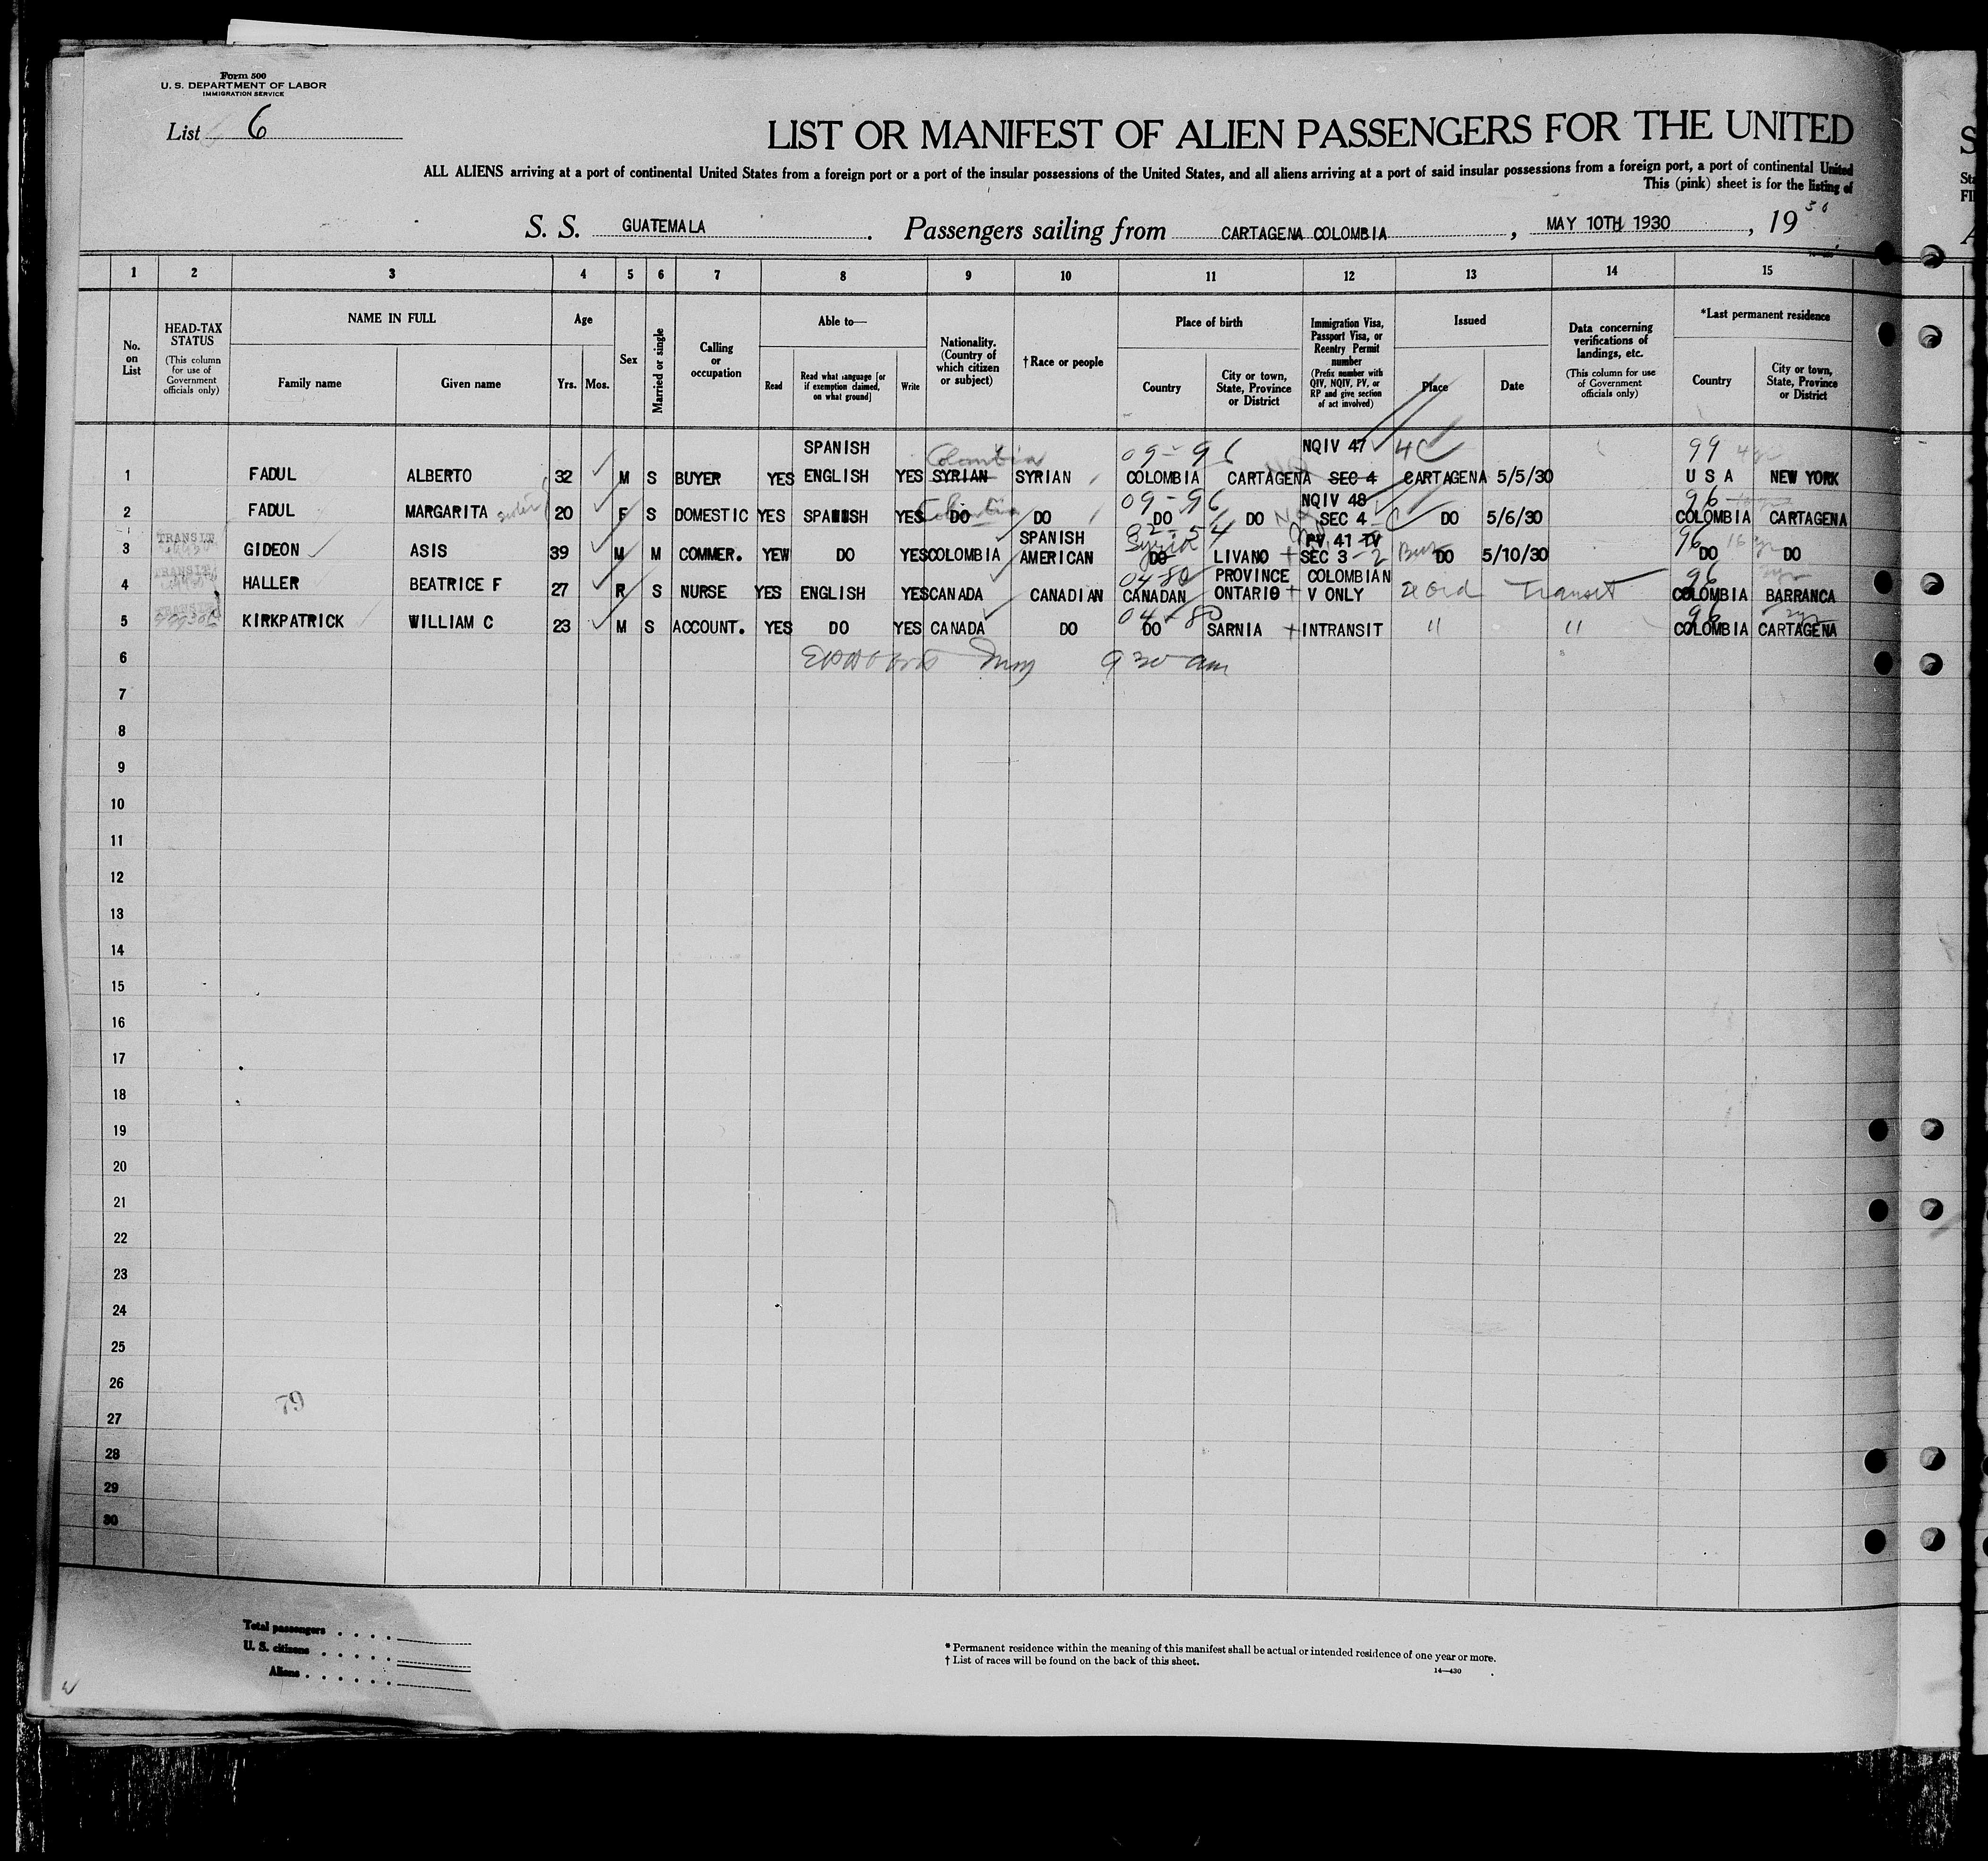 Form 500
U. S. DEPARTMENT OF LABOR
IMMIGRATION SERVICE
List 6
LIST OR MANIFEST OF ALIEN PASSENGERS FOR THE UNITED
ALL ALIENS arriving at a port of continental United States from a foreign port or a port of the insular possessions of the United States, and all aliens arriving at a port of said insular possessions from a foreign port, a port of continental United
This (pink) sheet is for the listing of
S. S. GUATEMALA . Passengers sailing from CARTAGENA COLOMBIA , MAY 10TH 1930 , 19 30
1 2 3 4 5 6 7 8 9 10 11 12 13 14 15
No. on List
HEAD-TAX STATUS (This column for use of Government officials only)
NAME IN FULL
Family name Given name
Age
Yrs. Mos.
Sex
Married or single
Calling or occupation
Able to—
Read Read what language [or if exemption claimed, on what ground] Write
Nationality. (Country of which citizen or subject)
†Race or people
Place of birth
Country City or town, State, Province or District
Immigration Visa, Passport Visa, or Reentry Permit number (Prefix number with QIV, NQIV, PV, or RP and give section of act involved)
Issued
Place Date
Data concerning verifications of landings, etc. (This column for use of Government officials only)
*Last permanent residence
Country City or town, State, Province or District
SPANISH Colombia 09-96 NQIV 47 4C 99
1 FADUL ALBERTO 32 M S BUYER YES ENGLISH YES SYRIAN SYRIAN COLOMBIA CARTAGENA SEC 4 CARTAGENA 5/5/30 U S A NEW YORK
09-96 NQIV 48 96
2 FADUL MARGARITA sister 20 F S DOMESTIC YES SPANISH YES DO Colombia DO DO DO SEC 4 C DO 5/6/30 COLOMBIA CARTAGENA
TRANSIT SPANISH Syria PV 41 TV 96
3 GIDEON ASIS 39 M M COMMER. YEW DO YES COLOMBIA AMERICAN DO LIVANO + SEC 3 - 2 DO 5/10/30 DO DO
TRANSIT 04-80 PROVINCE COLOMBIAN 96
4 HALLER BEATRICE F 27 R S NURSE YES ENGLISH YES CANADA CANADIAN CANADAN ONTARIO + V ONLY Transit COLOMBIA BARRANCA
TRANSIT 04-80 96
5 KIRKPATRICK WILLIAM C 23 M S ACCOUNT. YES DO YES CANADA DO DO SARNIA + INTRANSIT " " COLOMBIA CARTAGENA
6 9 30 am
7
8
9
10
11
12
13
14
15
16
17
18
19
20
21
22
23
24
25
26
79
27
28
29
30
Total passengers
U. S. citizens
Aliens
* Permanent residence within the meaning of this manifest shall be actual or intended residence of one year or more.
† List of races will be found on the back of this sheet.
14—430